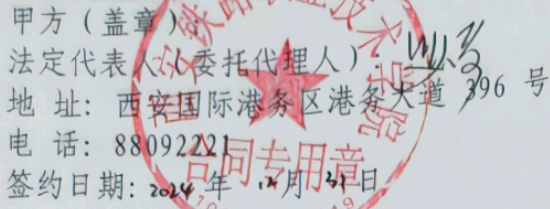 甲方（盖章）
法定代表人（委托代理人）：
地 址：西安国际港务区港务大道 396 号
电 话：88092221
签约日期：2024 年 12 月 31 日
安铁路职业技术学院
合同专用章